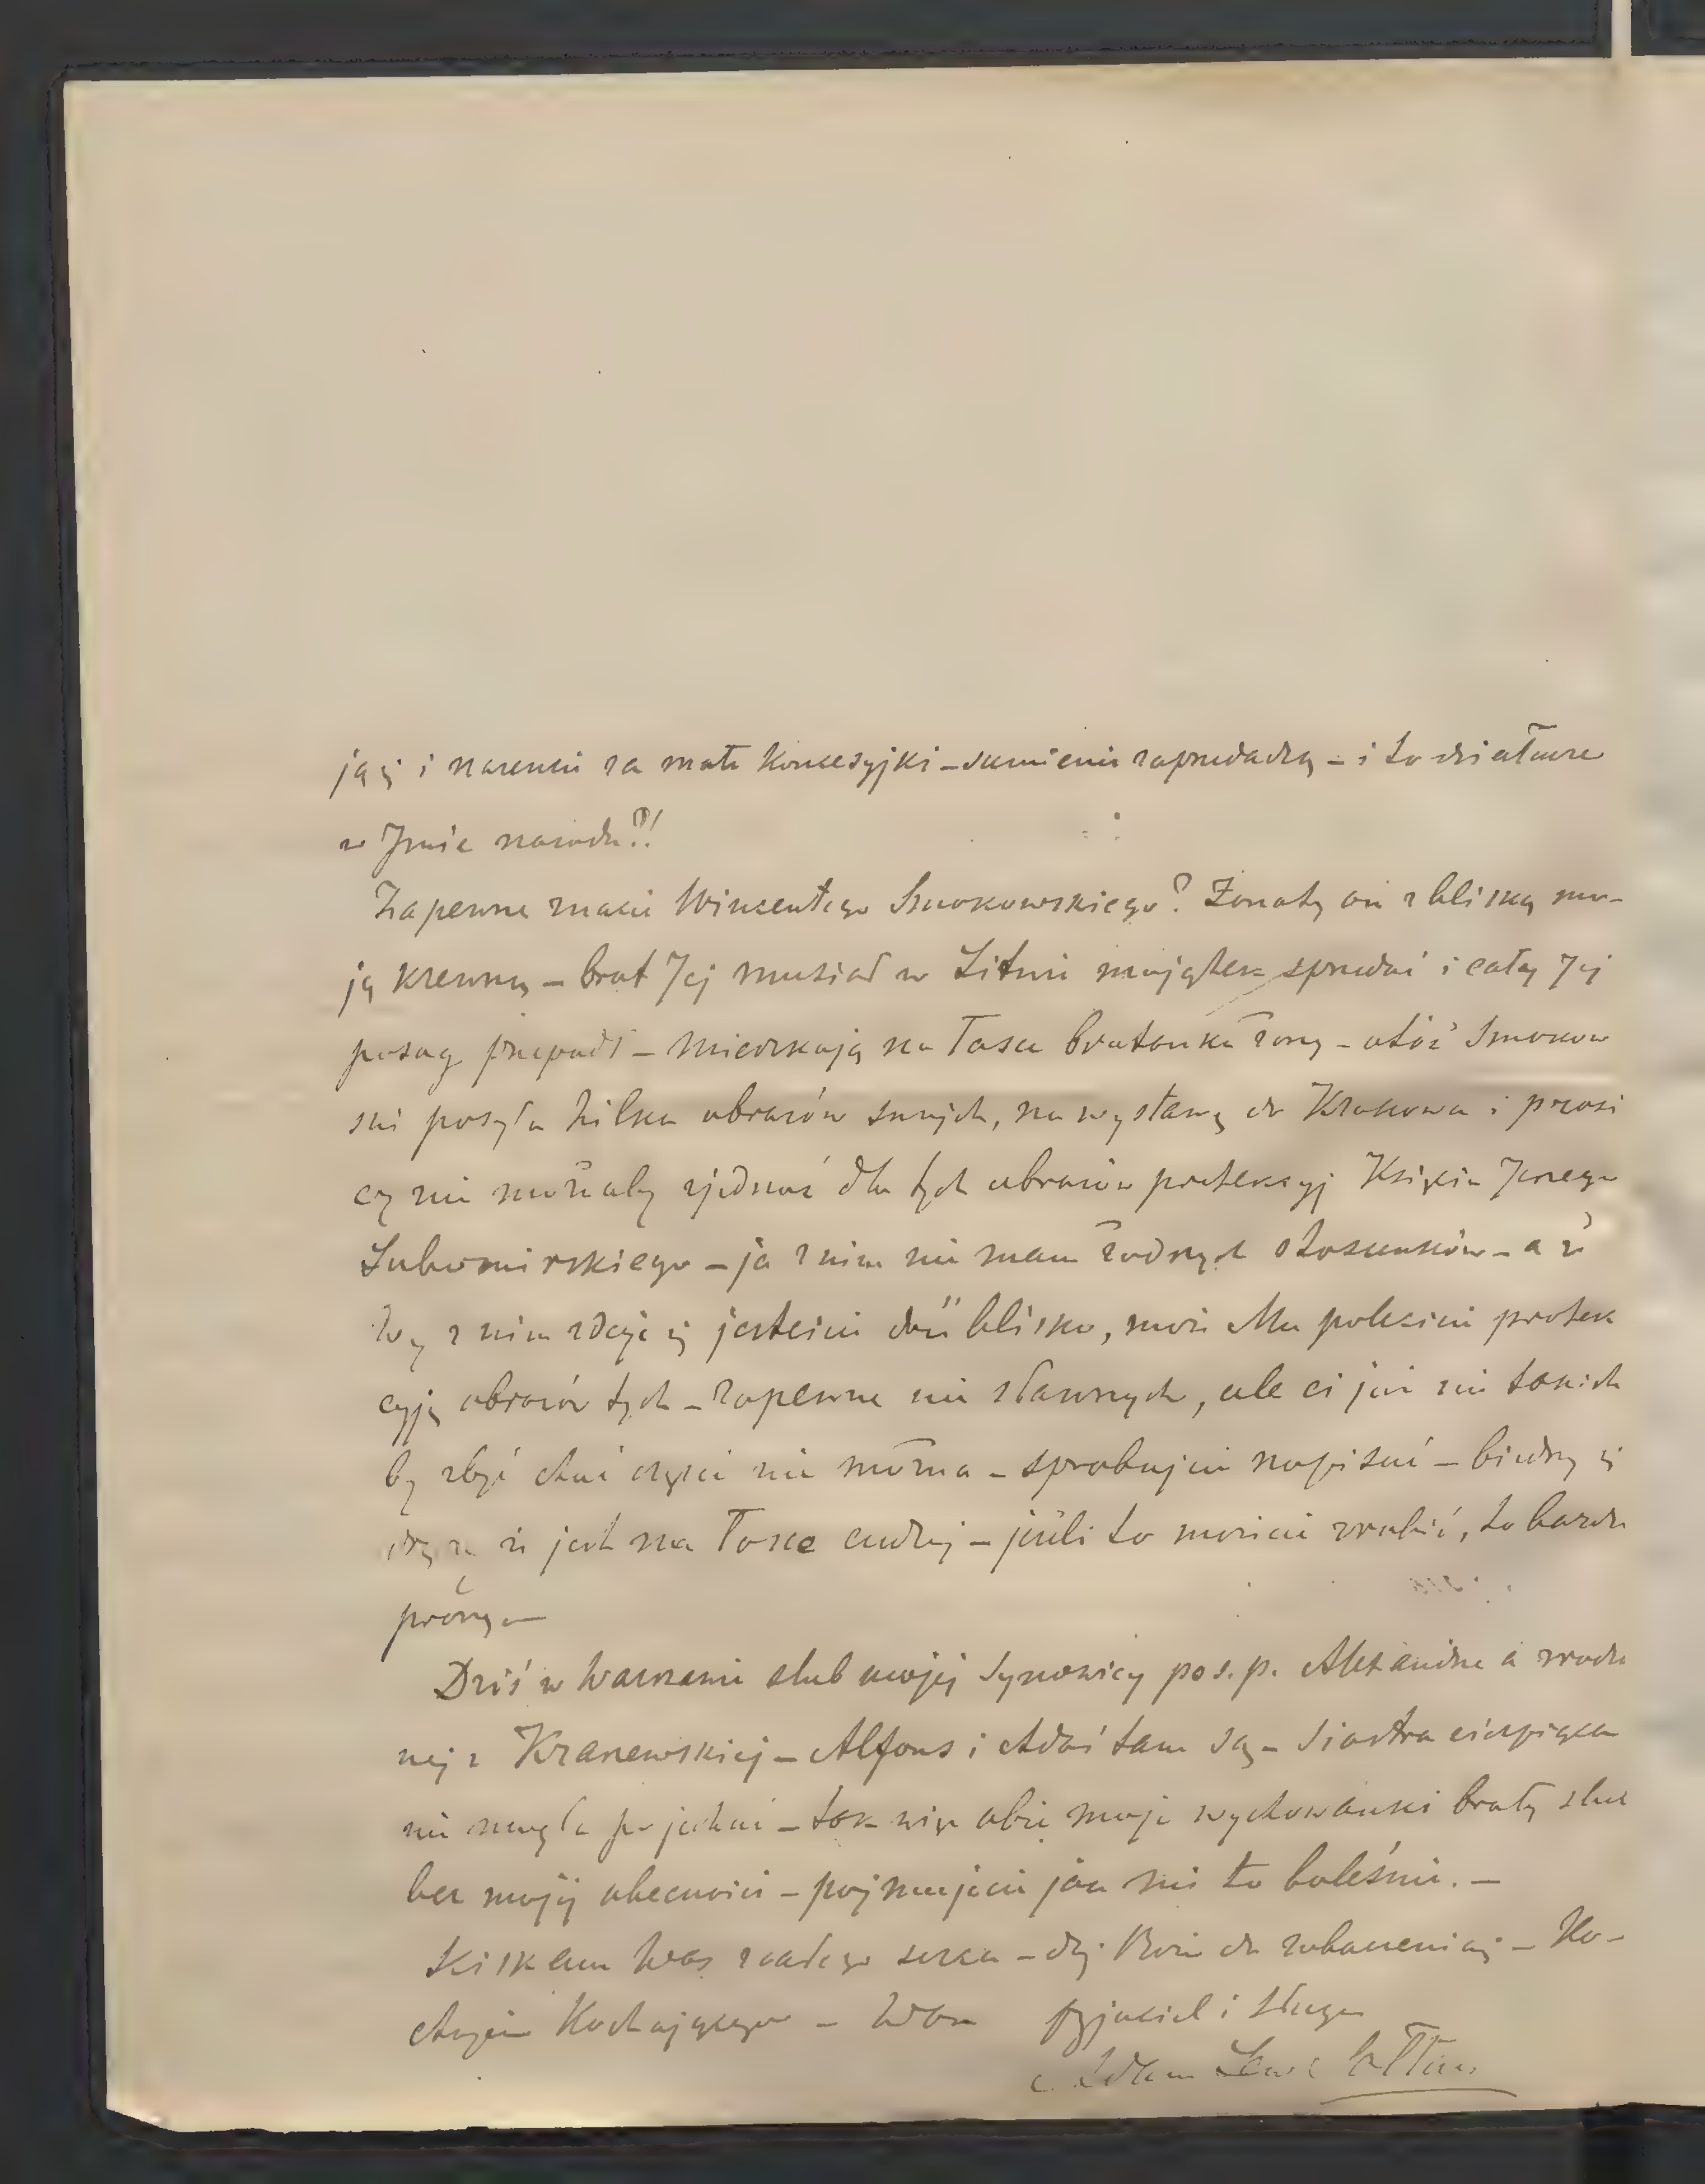 ją się i nareszcie za małe koncesyjki – sumienie zaprzedadzą – i to działacze
w Imie narodu?!
Zapewne znacie Wincentego Smokowskiego? Żonaty on z bliską mo-
ją krewną – brat Jej musiał w Litwie majątek sprzedać i cały Jej
posag przepadł – mieszkają na łasce bratanka żony – otóż Smokow
ski posyła kilka obrazów swych, na wystawę do Krakowa i prosi
czy nie możnaby zjednać dla tych obrazów protekcyj Księcia Jerzego
Lubomirskiego – ja z nim nie mam żadnych stosunków – a że
Wy z nim zdaje się jesteście dość blisko, może Mu polecicie protek
cyję obrazów tych – zapewne nie sławnych, ale ci już nie takich
by zbyć choć części nie można – sprobujcie napisać – biedny się
że jest na łasce cudzej – jeśli to możecie zrobić, to bardzo
proszę –
Dziś w Warszawie ślub mojej Synowicy po ś. p. Alexandrze a zrodzo
nej z Kranewskiej – Alfons i Adaś tam są – Siostra cierpiąca
nie mogła pojechać – tak więc obie moje wychowanki brały ślub
bez mojej obecności – pojmujecie jak mi to boleśnie. –
Ściskam Was z całego serca – daj Boże do zobaczenia się – Ko-
chajcie Kochającego – Was przyjaciel i sługa
Adam Lewak Sołtan